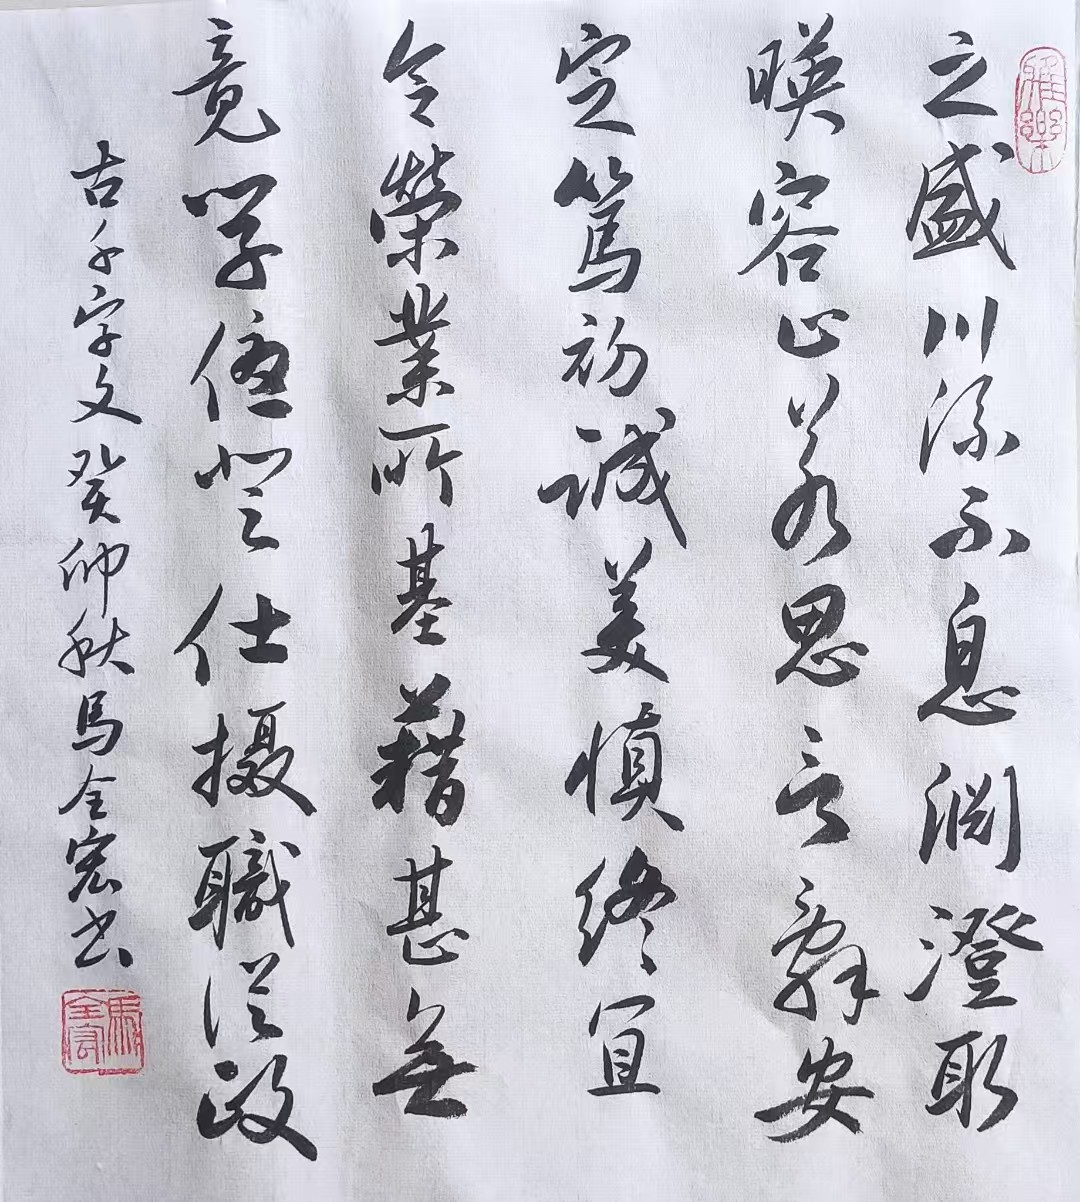 之盛川流不息渊澄取
暎容止若思言辞安
定笃初诚美慎终宜
令荣业所基藉甚无
竟学优登仕摄职从政
古千字文癸卯秋马全宏书
雅乐